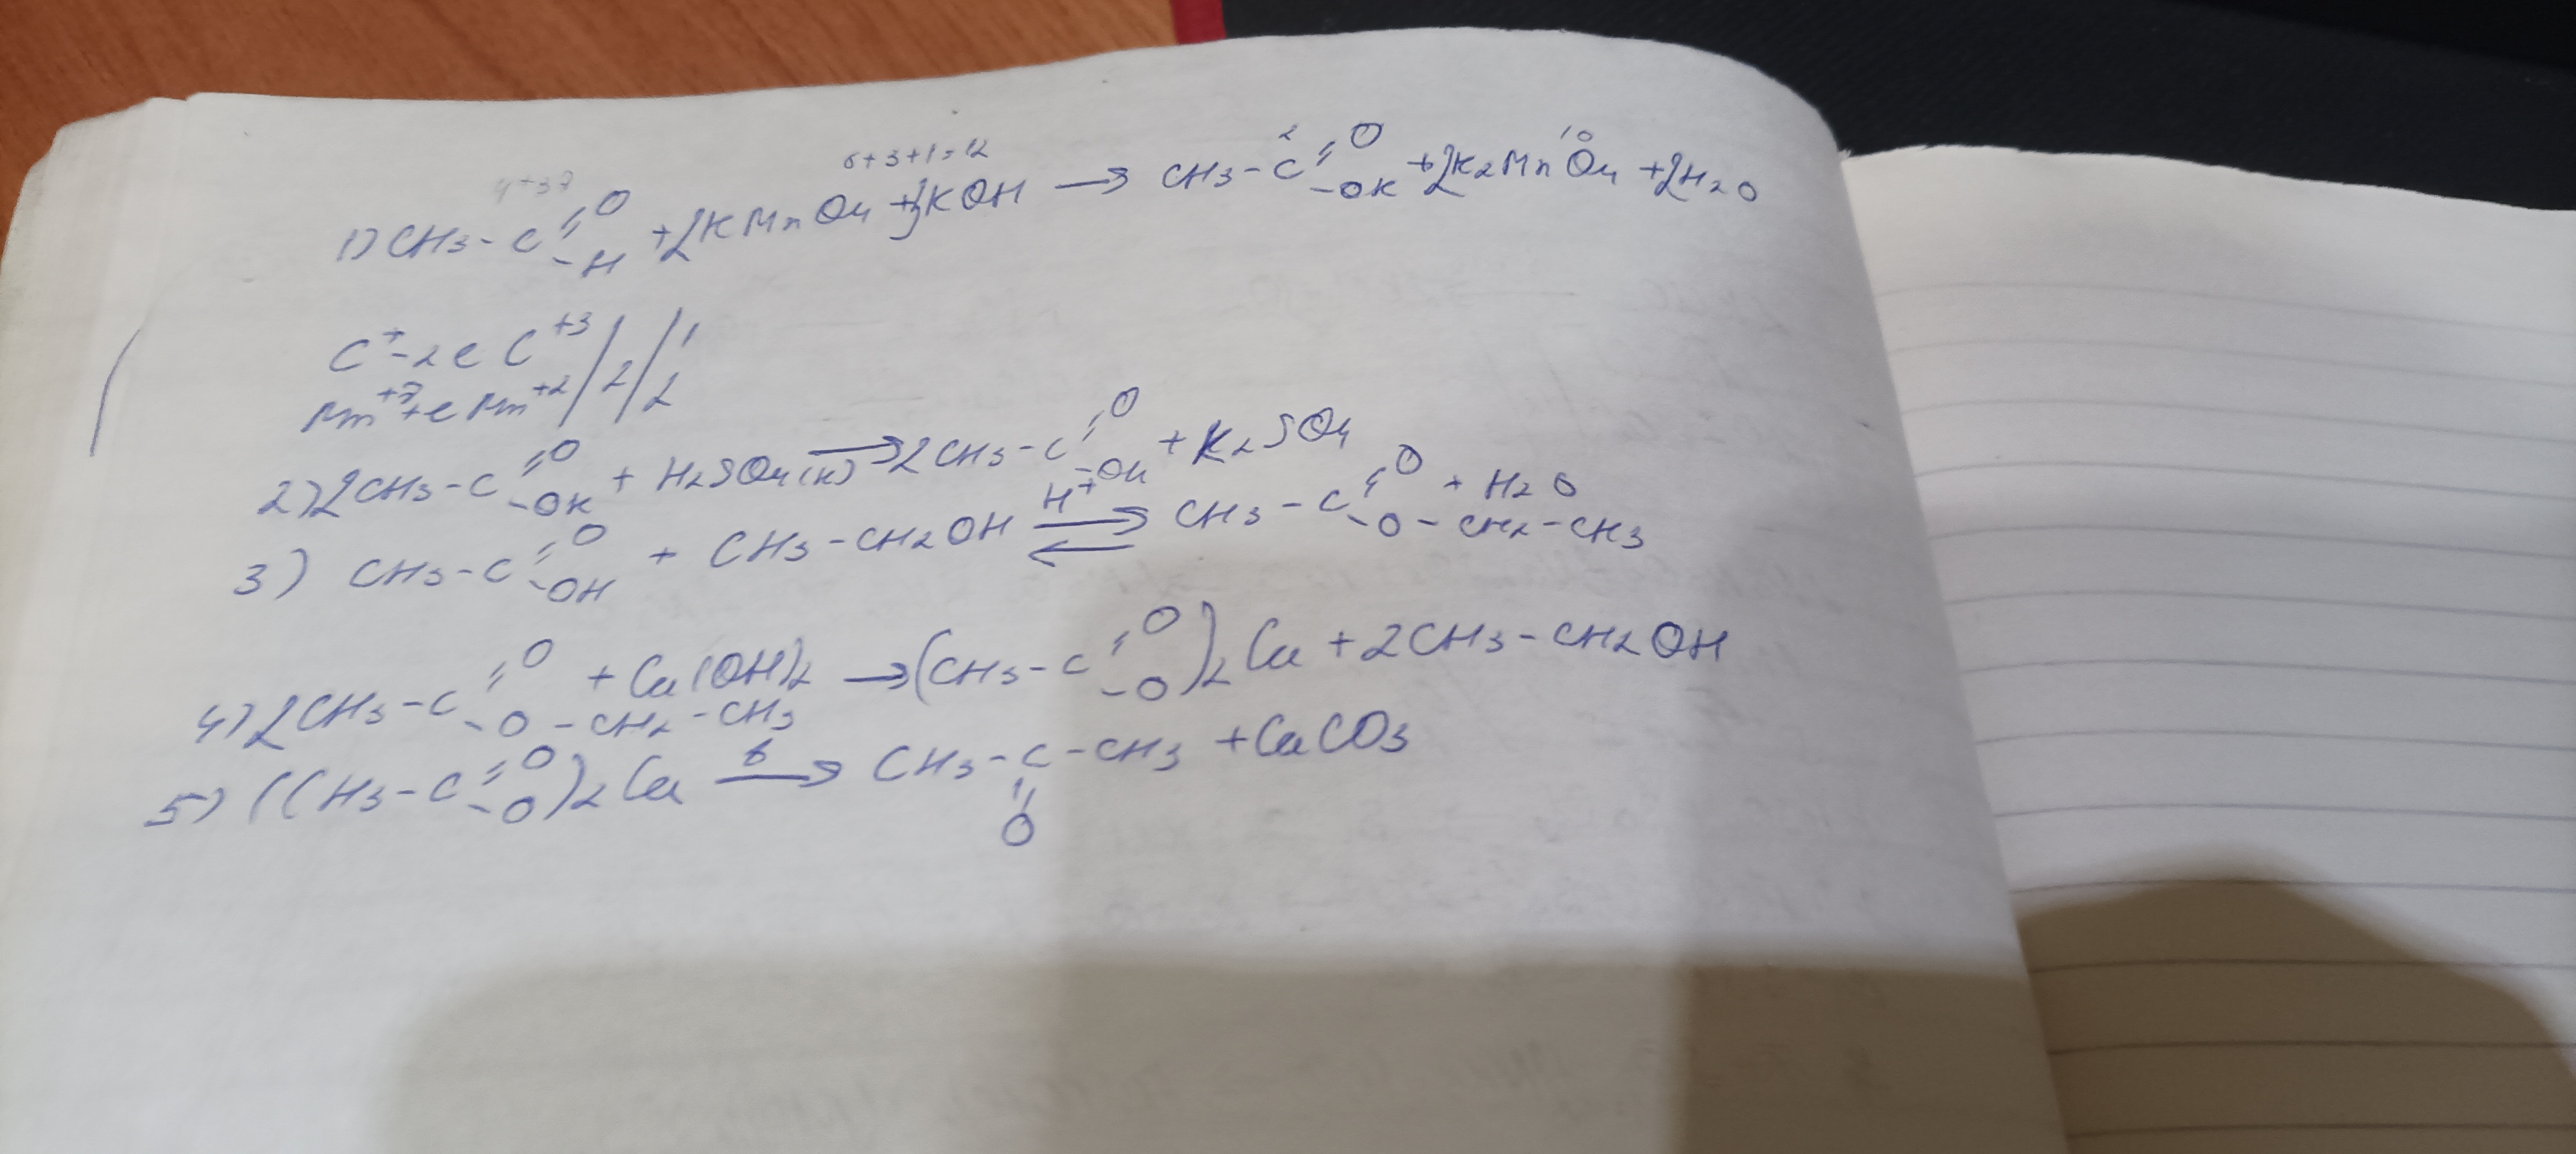 4+3
6+3+1=12
1) CH3-C =O -H +2KMnO4 +3KOH → CH3-C =O -OK +2K2MnO4 +2H2O
C⁺-2e C⁺³ / 2 / 1
Mn⁺⁷+e Mn⁺² / / 2
2) 2CH3-C =O -OK + H2SO4(к) → 2CH3-C =O -OH + K2SO4
3) CH3-C =O -OH + CH3-CH2OH ⇄ H⁺ CH3-C =O -O-CH2-CH3 + H2O
4) 2CH3-C =O -O-CH2-CH3 + Ca(OH)2 → (CH3-C =O -O)2Ca + 2CH3-CH2OH
5) (CH3-C =O -O)2Ca t→ CH3-C-CH3 + CaCO3
=O